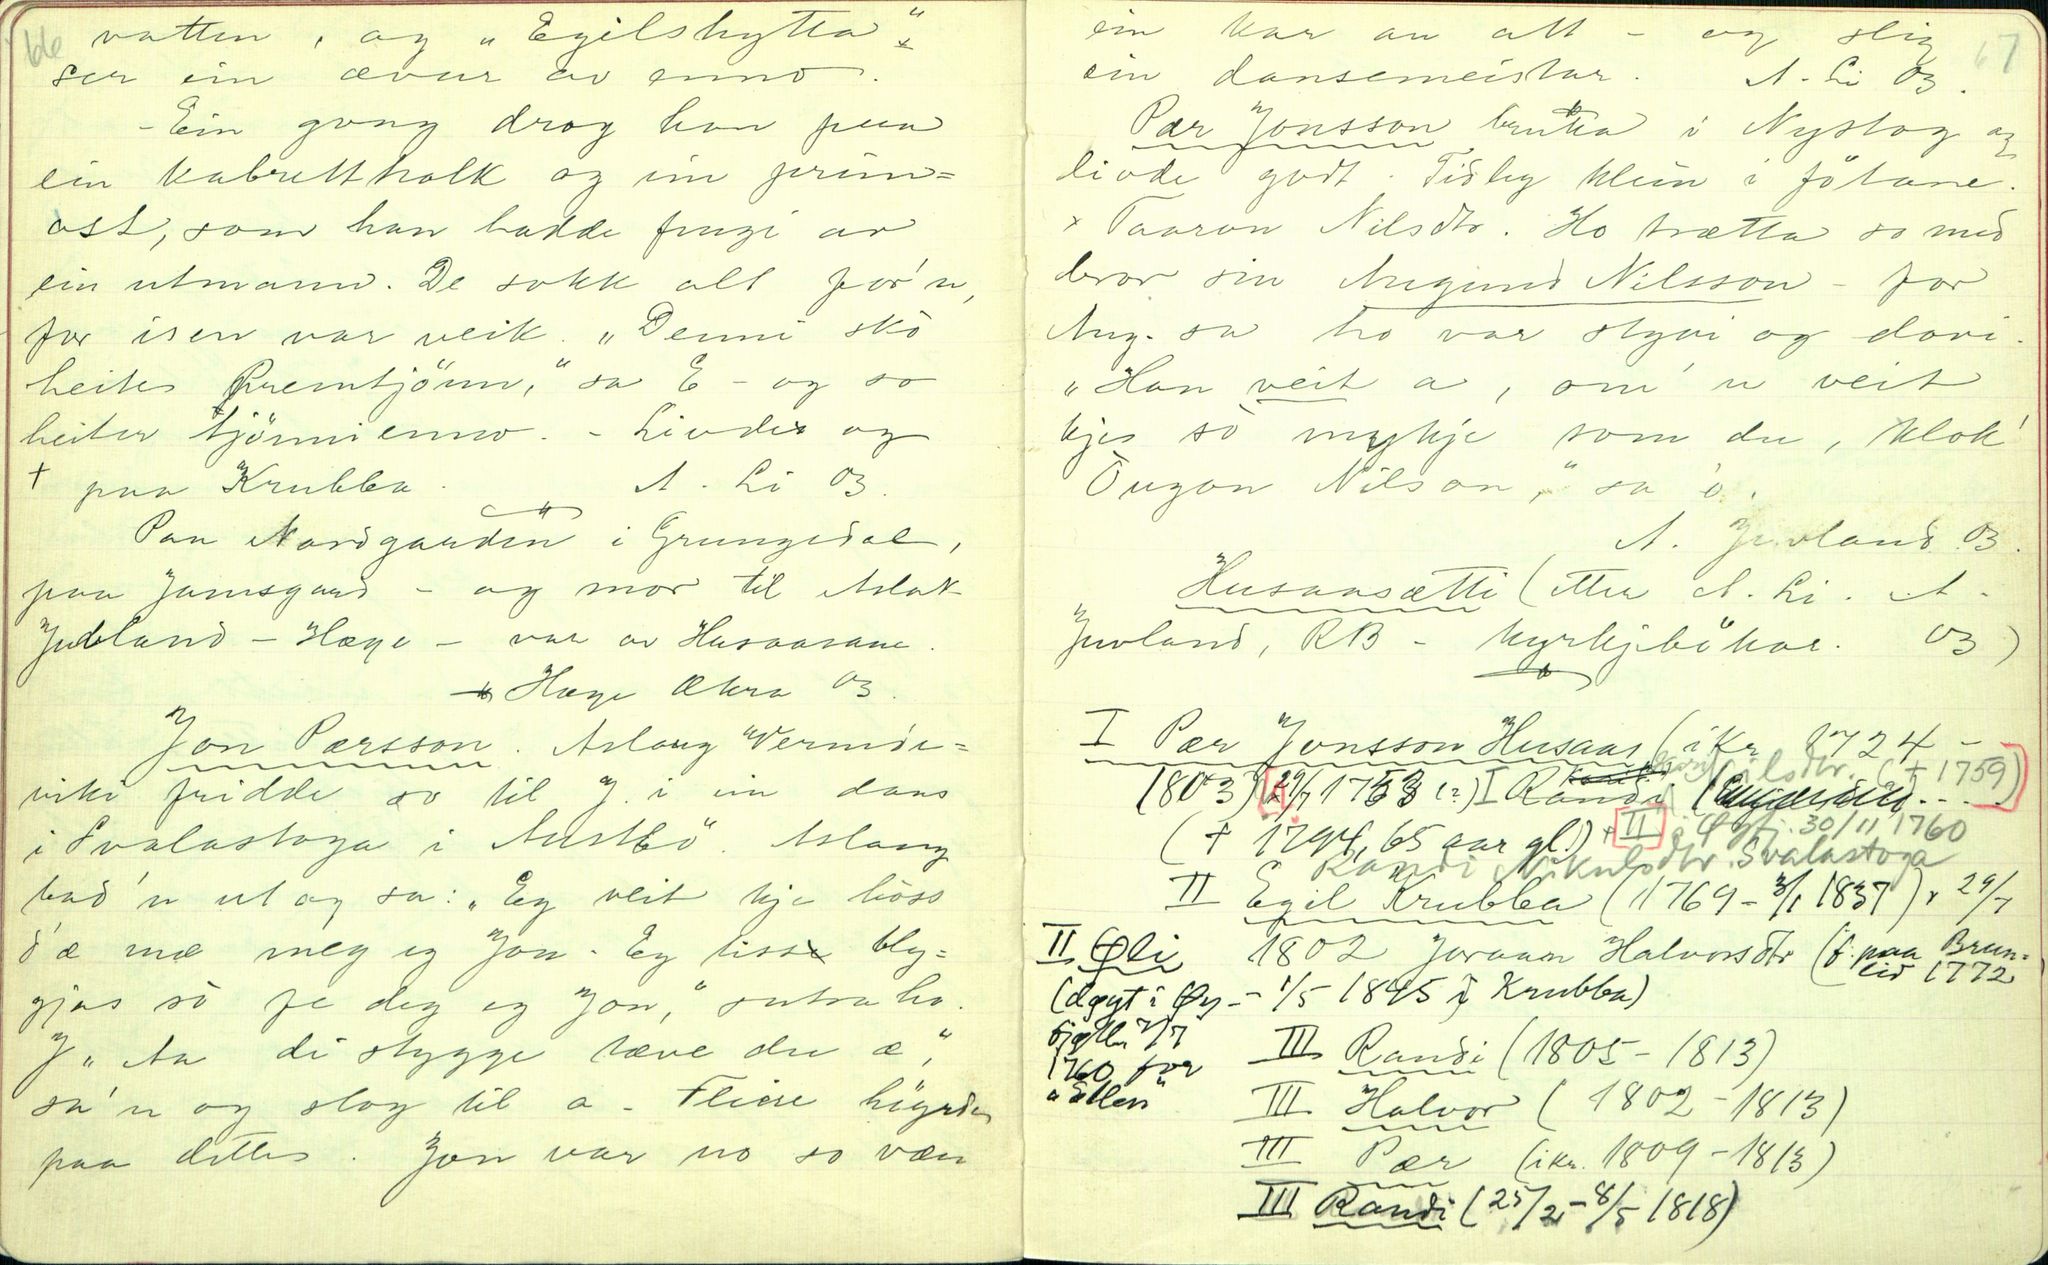 66
vatten, og „Egilshytta"
ser ein ævur av enno.
- Ein gong drog han paa
ein kabrettholk og ein prim=
ost, som han hadde fingi av
ein utmann. De sokk alt for'n,
for isen var veik. „Denni skò
heite Premtjönn," sa E - og so
heiter tjönni enno. - Livde og
+ paa Krubba. A. Li 03.
Paa Nordgarden i Grungedal,
paa Jamsgard - og mor til Aslak
Juvland - Hæge - var av Husaasane.
Hæge Økra 03.
Jon Pærsson. Aslaug Vermde=
viki fridde so til J. i ein dans
i Svalastoga i Austbö. Aslaug
bad'n ut og sa: „Eg veit kje höss
d'æ mæ meg eg Jon. Eg tiss bly=
gjas sò fe deg eg Jon," sutra ho.
J „Aa di stygge tæve du æ,"
sa'n og slog til a. Fleire höyrde
paa dette. Jon var no so væn
67
ein kar an att - og slig
ein dansemeistar. A. Li 03.
Pær Jonsson bruka i Nystog og
livde godt. Tidleg klein i fötane.
x Taaran Nilsdtr. Ho trætta so med
bror sin Augund Nilsson - for
Aug. sa ho var stygvi og dovi.
„Han veit a, om'n veit
kje sò mykje som du, klok'
Òugon Nilson," sa ò.
A. Juvland 03.
Husaasætti (etter A. Li. A.
Juvland, RB - kyrkjebökar. 03)
I Pær Jonsson Husaas (ikr 1724 -
1803) 29/7 1753 (?) I Nilsdtr. (+ 1759)
(+ 1794, 65 aar gl.) x II i Øyfj. 30/11 1760
Randi Nikulsdtr. Svalastoga
II Egil Krubba (1769 - 3/1 1837) x 29/7
1802 Joraan Halvorsdtr (f. paa Brun=
lid 1772
- 1/5 1845 i Krubba)
II Øli
(døypt i Øy-
fjell 7/7
1760 for
„Ellen"
III Randi (1805 - 1813)
III Halvor (1802 - 1813)
III Pær (ikr. 1809 - 1813)
III Randi (25/2 - 8/5 1818)